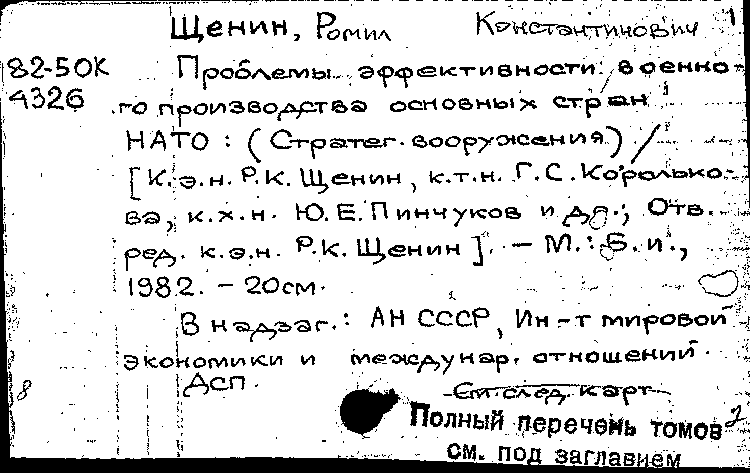 Щенин, Ромил Константинович 1
82-5ОК Проблемы эффективности военно-
4326 го производства основных стран
НАТО : (Стратег. вооружения) /
[К.э.н. Р.К. Щенин, к.т.н. Г.С. Королько-
ва, к.х.н. Ю.Е. Пинчуков и др.; Отв.
ред. к.э.н. Р.К. Щенин]. - М.: Б.и.,
1982. - 20см.
В надзаг.: АН СССР, Ин-т мировой
экономики и междунар. отношений.
ДСП.
8 См. след. карт
Полный перечень томов 2
см. под заглавием